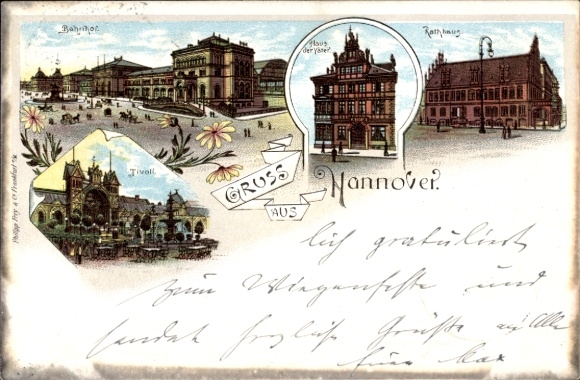 Bahnhof.
Haus
der Väter.
Rathhaus
Tivoli.
GRUSS
AUS
Hannover.
Philipp Frey & Co. Frankfurt a/M.
lich gratuliert
zum Wiegenfeste und
sendet herzliche Grüße an Alle